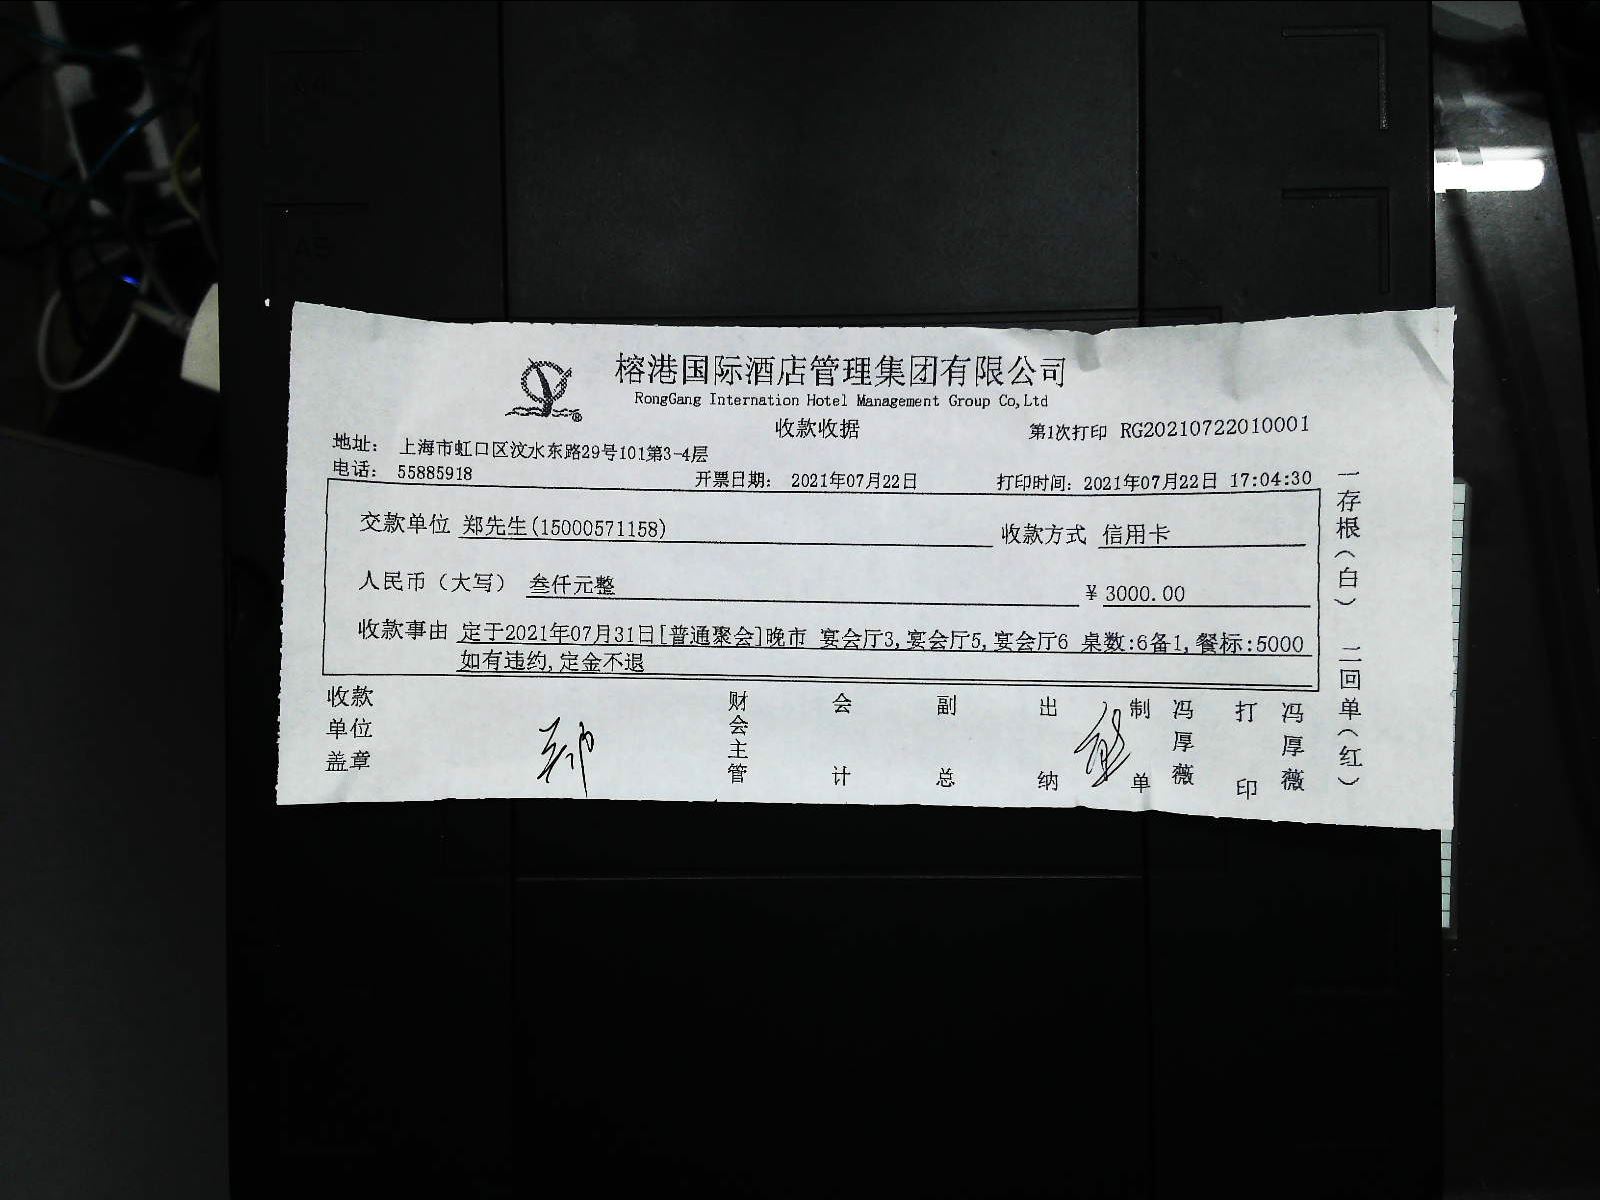 榕港国际酒店管理集团有限公司
RongGang Internation Hotel Management Group Co,Ltd
收款收据
第1次打印 RG20210722010001
地址： 上海市虹口区汶水东路29号101第3-4层
电话： 55885918 开票日期： 2021年07月22日 打印时间：2021年07月22日 17:04:30
交款单位 郑先生(15000571158) 收款方式 信用卡
人民币（大写） 叁仟元整 ¥ 3000.00
收款事由 定于2021年07月31日[普通聚会]晚市 宴会厅3,宴会厅5,宴会厅6 桌数:6备1,餐标:5000
如有违约,定金不退
收款单位盖章 财会主管 会计 副总 出纳 制单 冯厚薇 打印 冯厚薇
一存根（白） 二回单（红）
A5